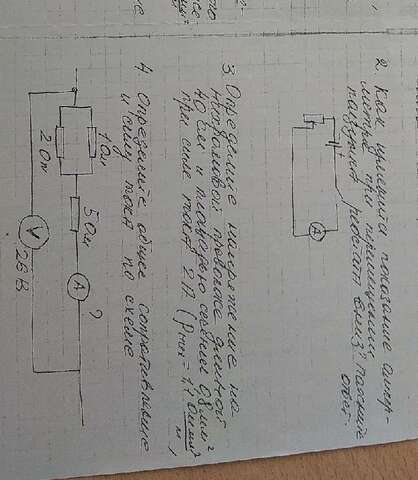 2. Как изменится показание ампер-
метра при перемещении
ползунка реостата вниз? Поясните
ответ.
A
3. Определите напряжение на
нихромовой проволоке длиной
40 см и площадью сечения 0,8 мм²
при силе тока 2 А. (ρних = 1,1 Ом мм²/м)
4 Определите общее сопротивление
и силу тока по схеме
1 Ом
2 Ом
5 Ом
A
?
V
26 В